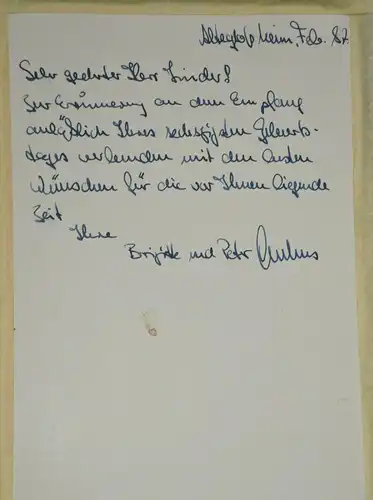 Feb. 87
Sehr geehrter Herr Linder!
Zur Erinnerung an den Empfang
anläßlich Ihres sechzigsten Geburts-
tages verbunden mit den besten
Wünschen für die vor Ihnen liegende
Zeit
Ihre
Brigitte und Peter